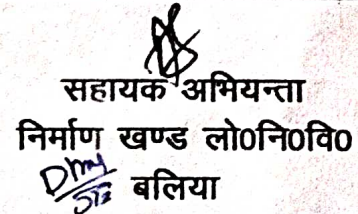 सहायक अभियन्ता
निर्माण खण्ड लो0नि0वि0
बलिया